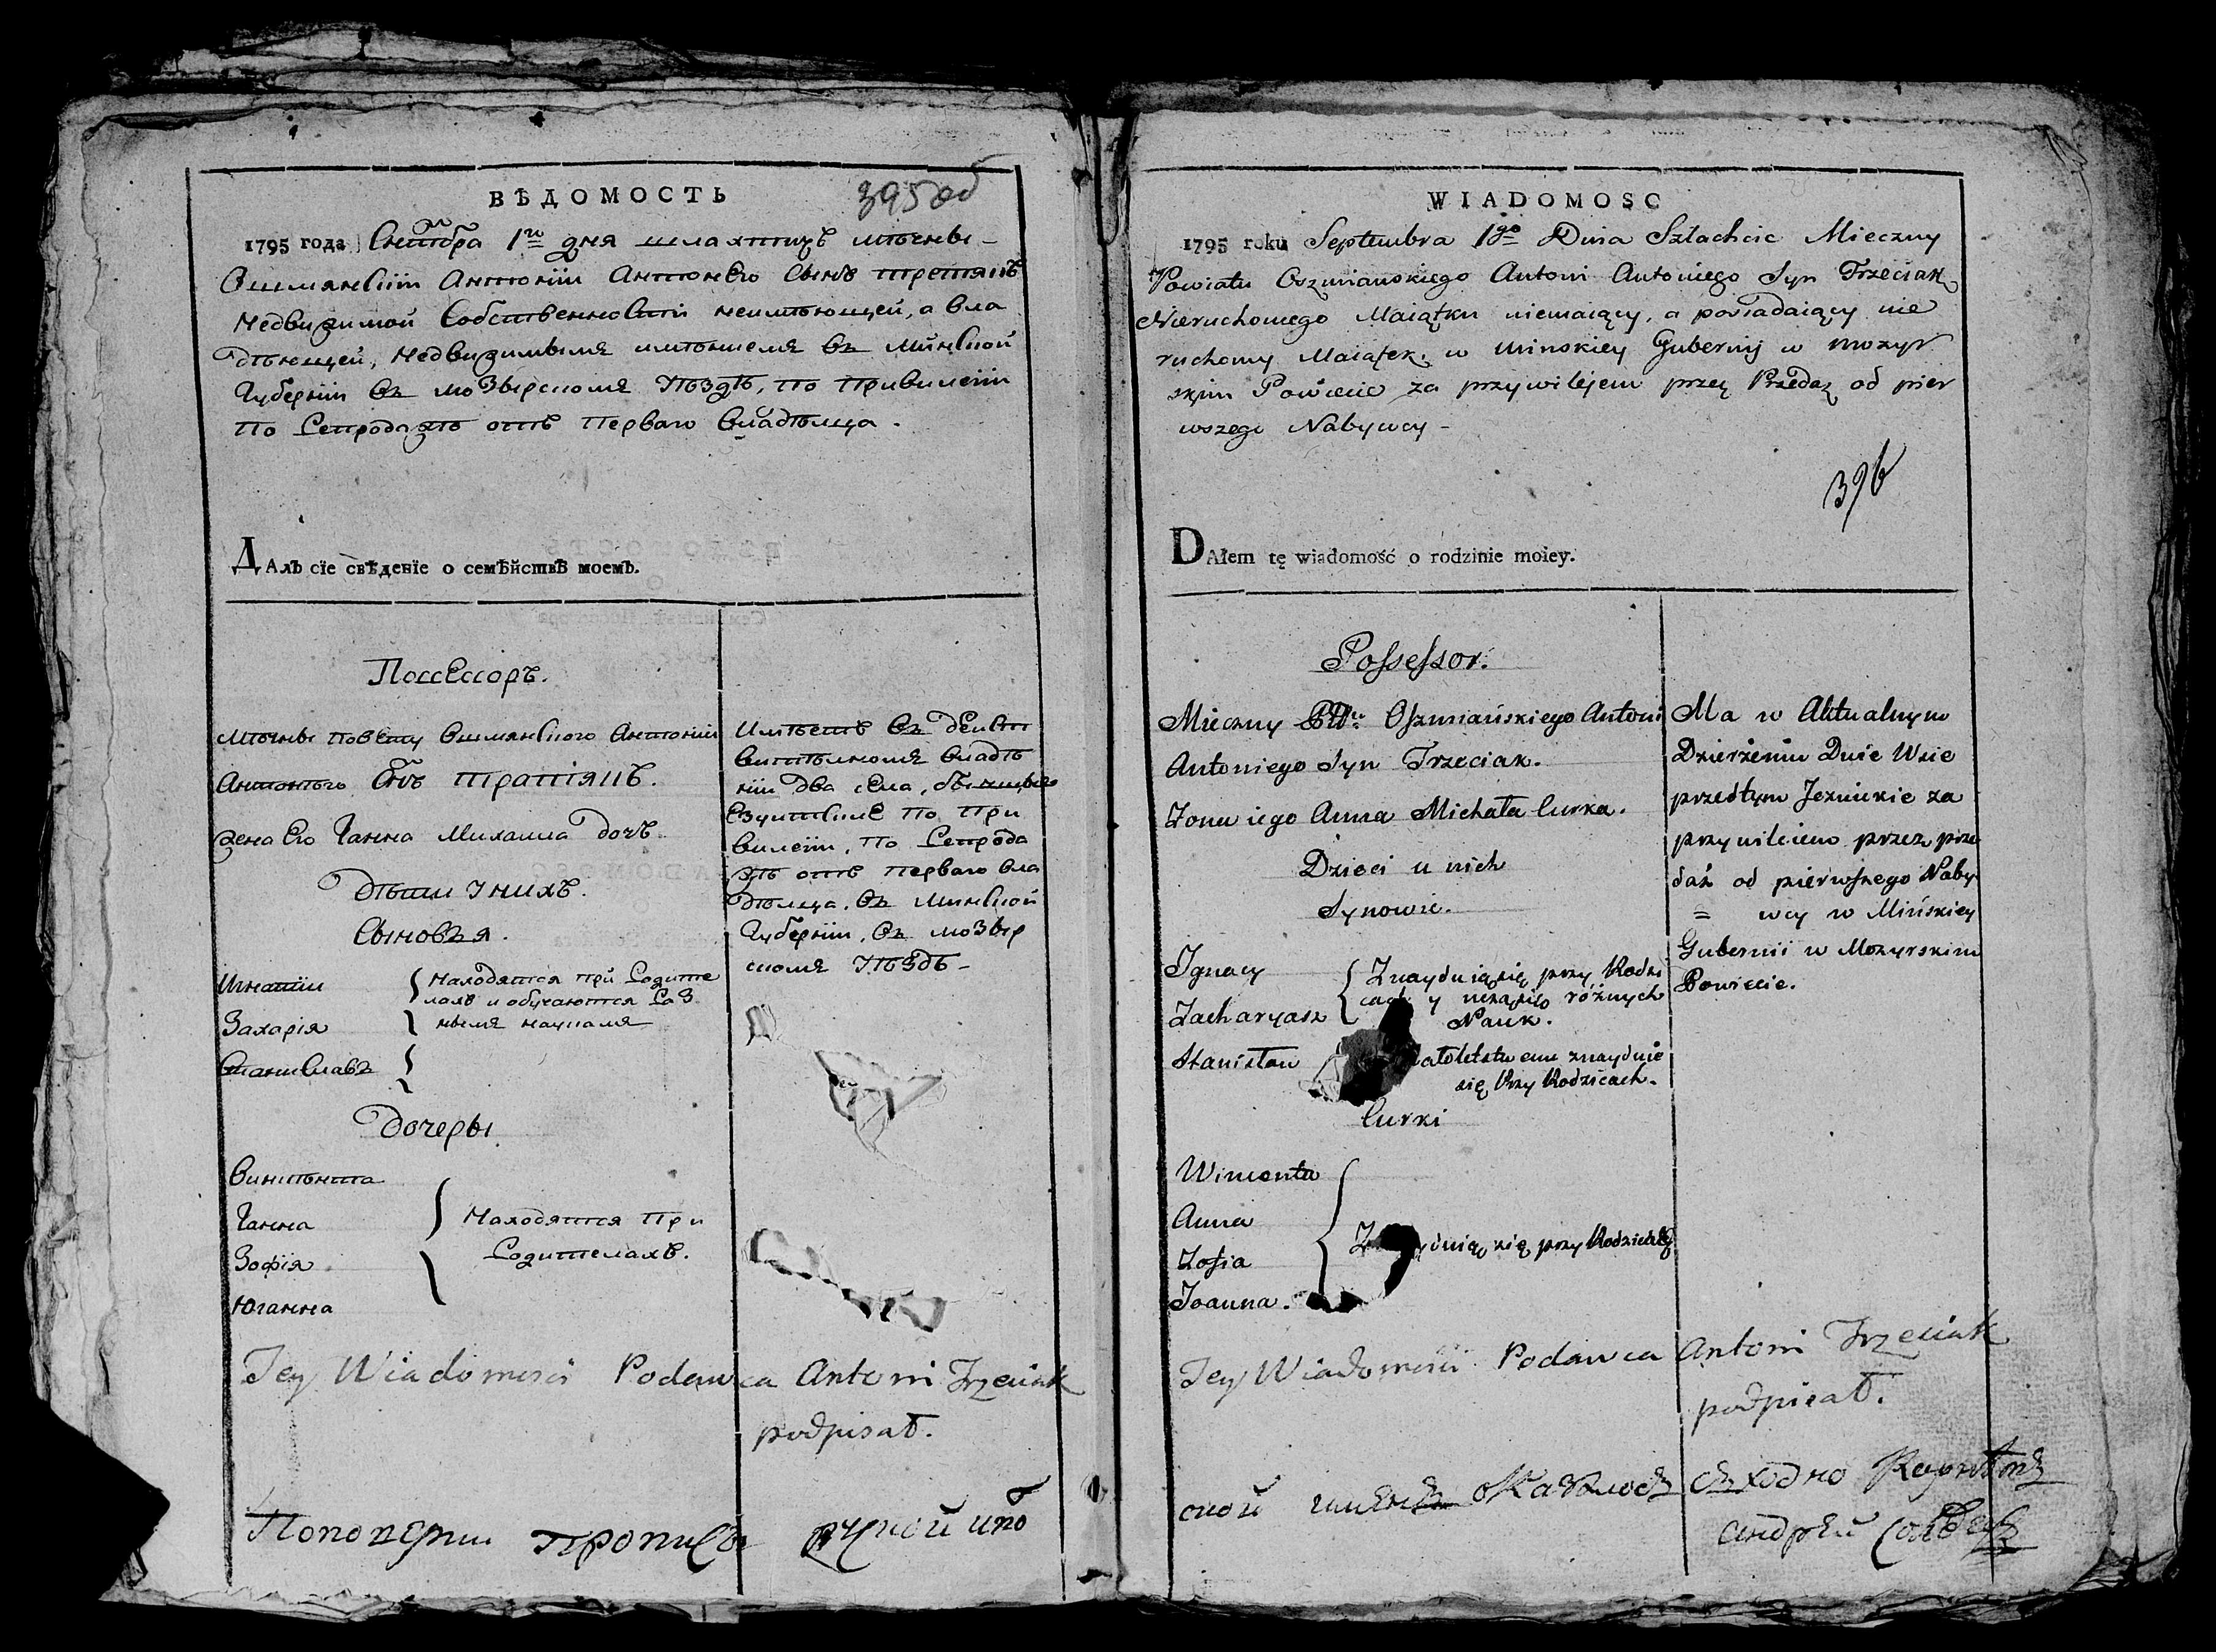 ВѢДОМОСТЬ
395 об
1795 года Сентебра 1го дня шляхтичъ мѣчны
Ошмянскіи Антоніи Антонего Сынъ Третякъ
Недвизимой Собственности неимѣющей, а вла
дѣющей, недвизимымъ имѣниемъ въ Минской
Губерніи въ мозырскомъ Уѣздѣ, по привилегіи
по отъ перваго владѣлца.
Далъ сїе свѣденїе о семѣйствѣ моемъ.
Поссессоръ.
Мѣчны повету Ошмянского Антоніи
Антонего Снъ Тратіякъ.
зена его Ганна Михаила дочъ.
Дѣти у нихъ.
Сыновъя.
Игнатіи
Захарія
Находятся при Родите
лахъ и обучаются Раз
нымъ наукамъ
Станиславъ
Дочеры
Винцѣнта
Ганна
Зофія
Юганна
Находятся при
Родителахъ.
Имѣетъ въ деист
вителномъ владѣ
ніи два села,
Езуитские по при
вилегіи, по
отъ перваго вла
дѣлца, въ Минской
Губерніи, въ мозыр
скомъ Уѣздѣ -
Tey Wiadomosci Podawca Antoni Trzeciak
podpisał.
WIADOMOSC
1795 roku Septembra 1go Dnia Szlachcic Mieczny
Powiatu Oszmianskiego Antoni Antoniego Syn Trzeciak
Nieruchomego Maiątku niemaiący, a posiadaiący nie
ruchomy Maiątek, w Minskiey Gubernij w mozyr
skim Powiecie za przywilejem przez Przedaż od pier
wszego Nabywcy -
396
DAłem tę wiadomość o rodzinie moiey.
Possessor.
Mieczny Pttu Oszmiańskiego Antoni
Antoniego Syn Trzeciak.
Zona iego Anna Michała Curka.
Dzieci u nich
Synowie.
Ignacy
Zacharyasz
Znayduią się przy Rodzi
cach y uczą się różnych
Nauk.
Stanisław
znayduie
się Przy Rodzicach.
Curki
Wincenta
Anna
Zofia
Joanna.
się przy Rodzicach
Ma w Aktualnym
Dzierżeniu Dwie Wsie
przedtym Jezuickie za
przywileiem przez prze
daż od pierwszego Naby
= wcy w Mińskiey
Gubernii w Mozyrskim
Powiecie.
Tey Wiadomości Podawca Antoni Trzeciak
podpisał.
сходно
андрей